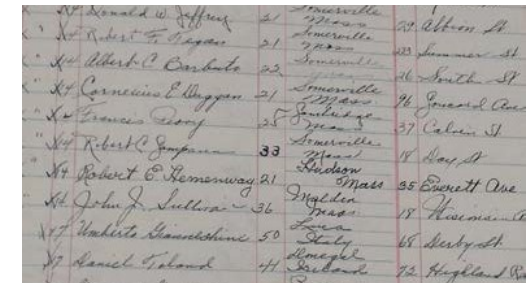 X4 Donald W. Jeffrey 21 Somerville Mass 29 Albion St
" X4 Robert F. Fagan 21 Somerville Mass 23 Summer St
" X4 Albert C Barbuto 22 Somerville Mass 26 South St
" X4 Cornelius E Duggan 21 Somerville Mass 96 Ave
" X4 Francis 25 Cambridge Mass 37 Calvin St
" X4 Robert C. 33 Somerville Mass 18 Day St
" X4 Robert E. Hemenway 21 Hudson Mass 35 Everett Ave
" X4 John J. Sullivan 36 Malden Mass 18 Wisconsin
X7 Umberto 50 Italy 68 Derby St.
X7 Daniel Toland 44 Donegal Ireland 72 Highland